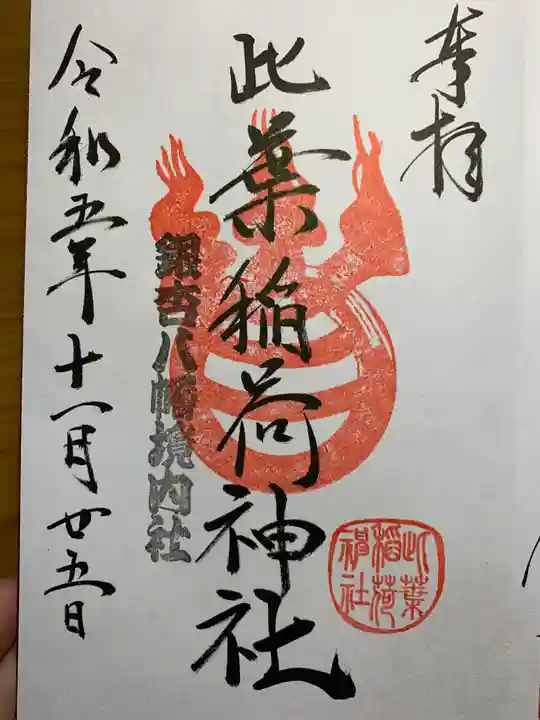 奉拝
此葉稲荷神社
銀杏八幡境内社
令和五年十一月廿五日
此葉
稲荷
神社